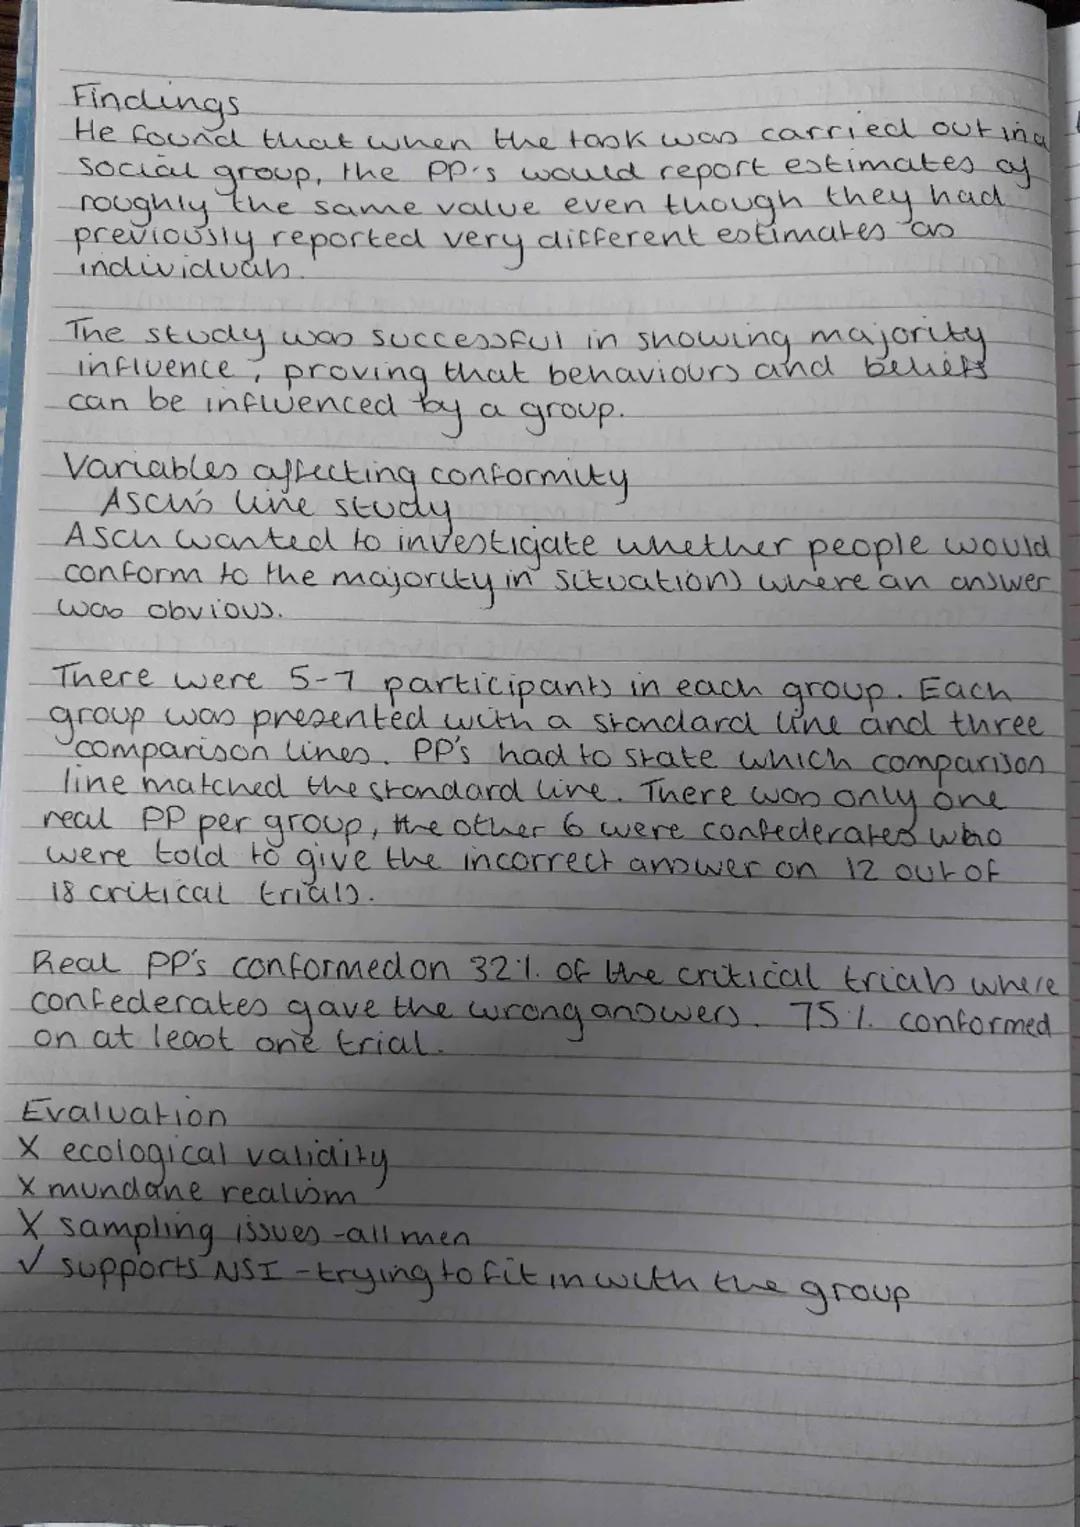 Findings
He found that when the task was carried out in a
social group, the PP's would report estimates of
roughly the same value even though they had
previously reported very different estimates as
individuals.
The study was successful in showing majority
influence, proving that behaviours and beliefs
can be influenced by a group.
Variables affecting conformity
Asch's line study
Asch wanted to investigate whether people would
conform to the majority in situations where an answer
was obvious.
There were 5-7 participants in each group. Each
group was presented with a standard line and three
comparison lines. PP's had to state which comparison
line matched the standard line. There was only one
real PP per group, the other 6 were confederates who
were told to give the incorrect answer on 12 out of
18 critical trials.
Real PP's conformed on 32%. of the critical trials where
confederates gave the wrong answers. 75%. conformed
on at least one trial.
Evaluation
X ecological validity
X mundane realism
X sampling issues - all men
✓ supports NSI - trying to fit in with the group